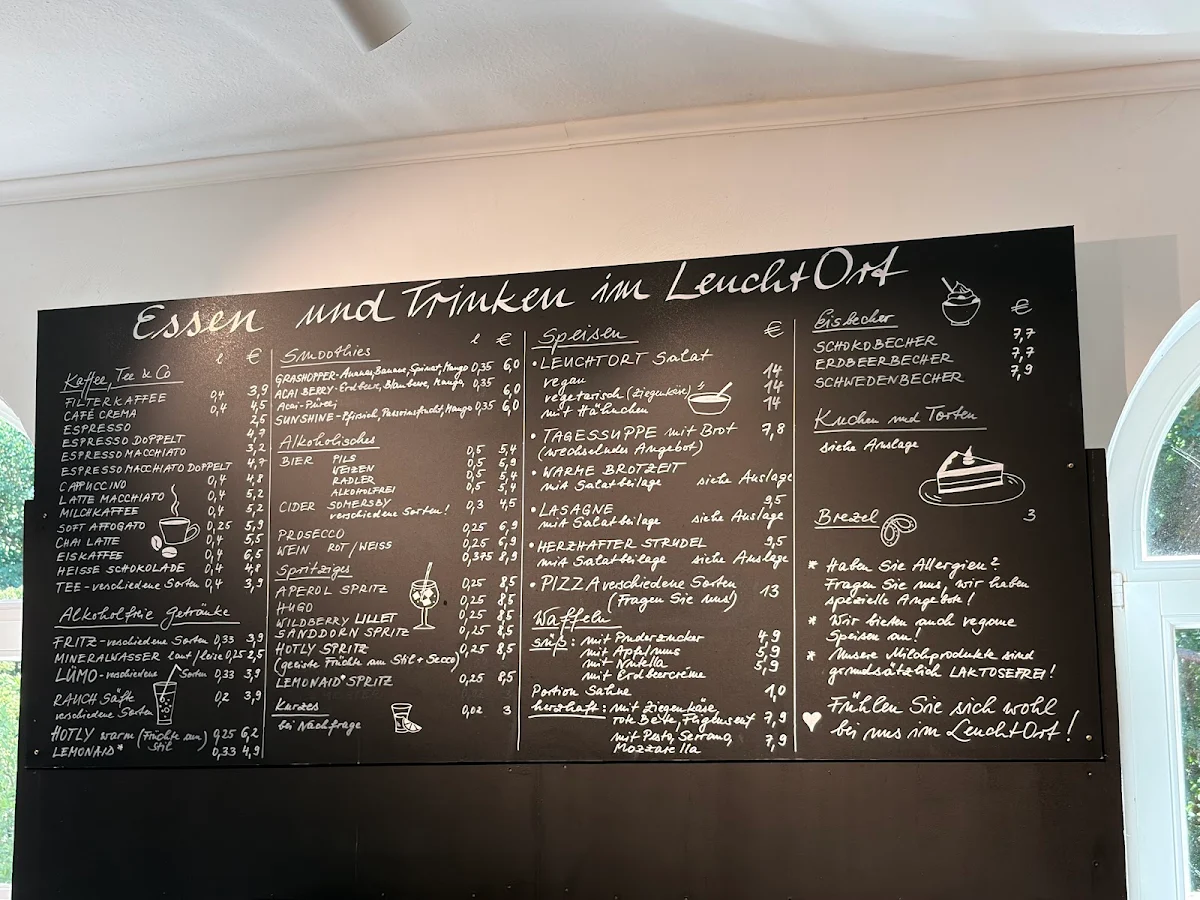 Essen und Trinken im LeuchtOrt
l €
Kaffee, Tee & Co
FILTERKAFFEE 0,4 3,9
CAFÉ CREMA 0,4 4,5
ESPRESSO 2,6
ESPRESSO DOPPELT 4,7
ESPRESSO MACCHIATO 3,2
ESPRESSO MACCHIATO DOPPELT 4,7
CAPPUCCINO 0,4 4,8
LATTE MACCHIATO 0,4 5,2
MILCHKAFFEE 0,4 5,2
SOFT AFFOGATO 0,25 5,9
CHAI LATTE 0,4 5,5
EISKAFFEE 0,4 6,5
HEISSE SCHOKOLADE 0,4 4,8
TEE - verschiedene Sorten 0,4 3,9
Alkoholfrie Getränke
FRITZ - verschiedene Sorten 0,33 3,9
MINERALWASSER Laut/Leise 0,25 2,5
LÜMO - verschiedene Sorten 0,33 3,9
RAUCH Säfte 0,2 3,9
verschiedene Sorten
HOTLY warm (Früchte am Stil) 0,25 6,2
LEMONAID* 0,33 4,9
l €
Smoothies
GRASHOPPER - Ananas, Banane, Spinat, Mango 0,35 6,0
ACAI BERRY - Erdbeere, Blaubeere, Mango, 0,35 6,0
Acai-Püree
SUNSHINE - Pfirsich, Passionsfrucht, Mango 0,35 6,0
Alkoholisches
BIER PILS 0,5 5,4
WEIZEN 0,5 5,9
RADLER 0,5 5,4
ALKOHOLFREI 0,5 5,4
CIDER SOMERSBY 0,3 4,5
verschiedene Sorten!
PROSECCO 0,25 6,9
WEIN ROT/WEISS 0,25 6,9
0,375 8,9
Spritziges
APEROL SPRITZ 0,25 8,5
HUGO 0,25 8,5
WILDBERRY LILLET 0,25 8,5
SANDDORN SPRITZ 0,25 8,5
HOTLY SPRITZ 0,25 8,5
(geeiste Früchte am Stil + Secco)
LEMONAID* SPRITZ 0,25 8,5
Kurzes 0,02 3
bei Nachfrage
Speisen €
• LEUCHTORT Salat
vegan 14
vegetarisch (Ziegenkäse) 14
mit Hähnchen 14
• TAGESSUPPE mit Brot 7,8
(wechselndes Angebot)
• WARME BROTZEIT
mit Salatbeilage siehe Auslage
• LASAGNE 9,5
mit Salatbeilage siehe Auslage
• HERZHAFTER STRUDEL 9,5
mit Salatbeilage siehe Auslage
• PIZZA verschiedene Sorten 13
(Fragen Sie uns!)
Waffeln
süß: mit Puderzucker 4,9
mit Apfelmus 5,9
mit Nutella 5,9
mit Erdbeercrème
Portion Sahne 1,0
herzhaft: mit Ziegenkäse,
rote Bete, Feigensenf 7,9
mit Pesto, Serrano, 7,9
Mozzarella
Eisbecher €
SCHOKOBECHER 7,7
ERDBEERBECHER 7,7
SCHWEDENBECHER 7,9
Kuchen und Torten
siehe Auslage
Brezel 3
* Haben Sie Allergien?
Fragen Sie uns, wir haben
spezielle Angebote!
* Wir bieten auch vegane
Speisen an!
* Unsere Milchprodukte sind
grundsätzlich LAKTOSEFREI!
Fühlen Sie sich wohl
bei uns im LeuchtOrt!